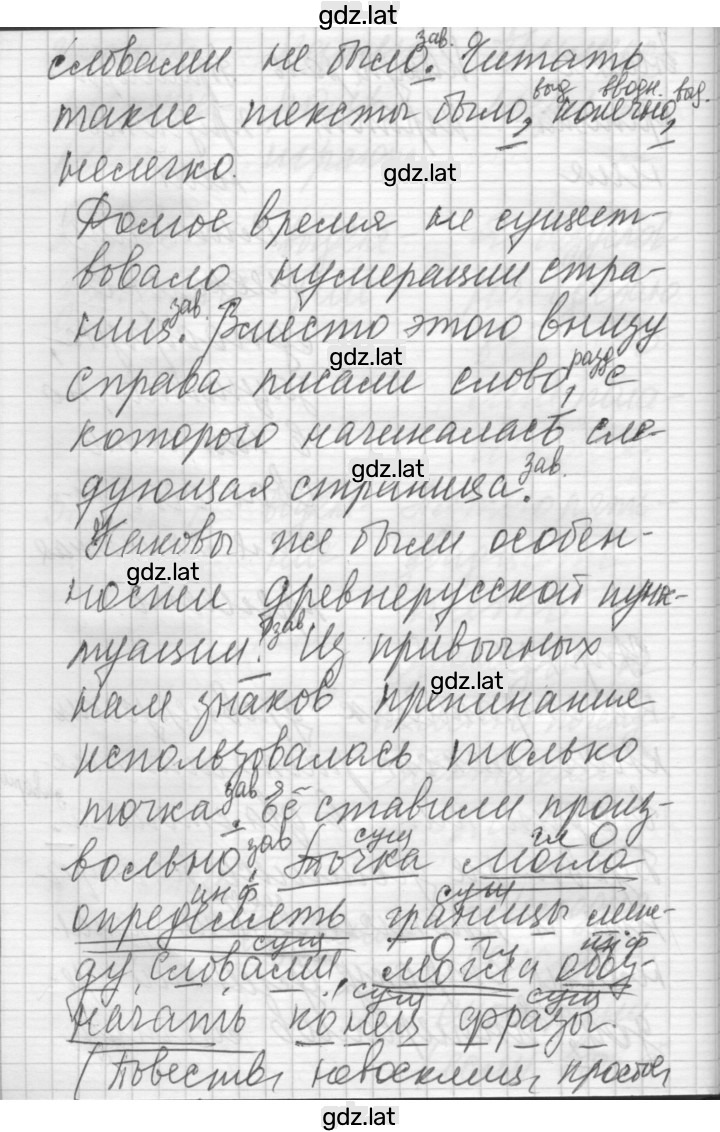 gdz.lat
словами не было. зав. Читать
такие тексты было, выд. конечно, вводн. выд.
нелегко.
gdz.lat
Долгое время не сущест-
вовало нумерации стра-
ниц. зав. Вместо этого внизу
gdz.lat
справа писали слово, разд. с
которого начиналась сле-
gdz.lat
дующая страница. зав.
Каковы же были особен-
gdz.lat
ности древнерусской пунк-
туации? зав. Из привычных
gdz.lat
нам знаков препинания
использовалась только
точка. зав. Её ставили произ-
вольно. зав. [Точка сущ. могла гл.
определять инф. границы сущ. меж-
ду словами, сущ. могла гл. обоз-
начать инф. конец сущ. фразы. сущ.
(Повеств, невосклиц,
gdz.lat